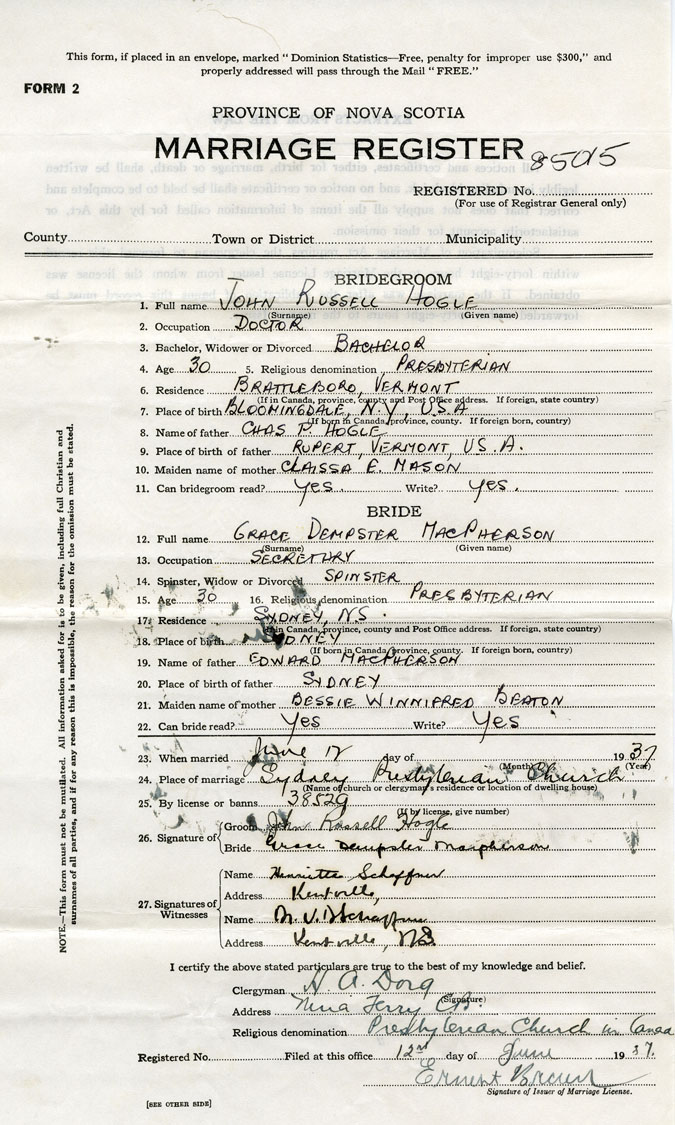 This form, if placed in an envelope, marked " Dominion Statistics—Free, penalty for improper use $300," and
properly addressed will pass through the Mail " FREE."
FORM 2
PROVINCE OF NOVA SCOTIA
MARRIAGE REGISTER 85015
REGISTERED No.
(For use of Registrar General only)
County Town or District Municipality
BRIDEGROOM
1. Full name JOHN RUSSELL HOGLE
(Surname) (Given name)
2. Occupation DOCTOR
3. Bachelor, Widower or Divorced BACHELOR
4. Age 30 5. Religious denomination PRESBYTERIAN
6. Residence BRATTLEBORO, VERMONT
(If in Canada, province, county and Post Office address. If foreign, state country)
7. Place of birth BLOOMINGDALE, N.Y, U.S.A
(If born in Canada, province, county. If foreign born, country)
8. Name of father CHAS P. HOGLE
9. Place of birth of father RUPERT, VERMONT, U.S.A.
10. Maiden name of mother CLAISSA E. MASON
11. Can bridegroom read? Yes. Write? Yes.
BRIDE
12. Full name GRACE DEMPSTER MACPHERSON
(Surname) (Given name)
13. Occupation SECRETARY
14. Spinster, Widow or Divorced SPINSTER
15. Age 30 16. Religious denomination PRESBYTERIAN
17. Residence SYDNEY, NS.
(If in Canada, province, county and Post Office address. If foreign, state country)
18. Place of birth SYDNEY
(If born in Canada, province, county. If foreign born, country)
19. Name of father EDWARD MACPHERSON
20. Place of birth of father SYDNEY
21. Maiden name of mother BESSIE WINNIFRED BEATON
22. Can bride read? Yes Write? Yes
23. When married June 12 day of 1937
(Month) (Year)
24. Place of marriage Sydney Presbyterian Church
(Name of church or clergyman's residence or location of dwelling house)
25. By license or banns 38529
(If by license, give number)
26. Signature of Groom John Russell Hogle
Bride Grace Dempster Macpherson
27. Signatures of Witnesses
Name Henrietta Schaffner
Address Kentville,
Name Schaffner
Address Kentville, NS
I certify the above stated particulars are true to the best of my knowledge and belief.
Clergyman A.
(Signature)
Address Ferry C.B.
Religious denomination Presbyterian Church in Canada
Registered No. Filed at this office 12 day of June 1937.
Ernest Brown
Signature of Issuer of Marriage License.
[SEE OTHER SIDE]
NOTE.—This form must not be mutilated. All information asked for is to be given, including full Christian and
surnames of all parties, and if for any reason this is impossible, the reason for the omission must be stated.